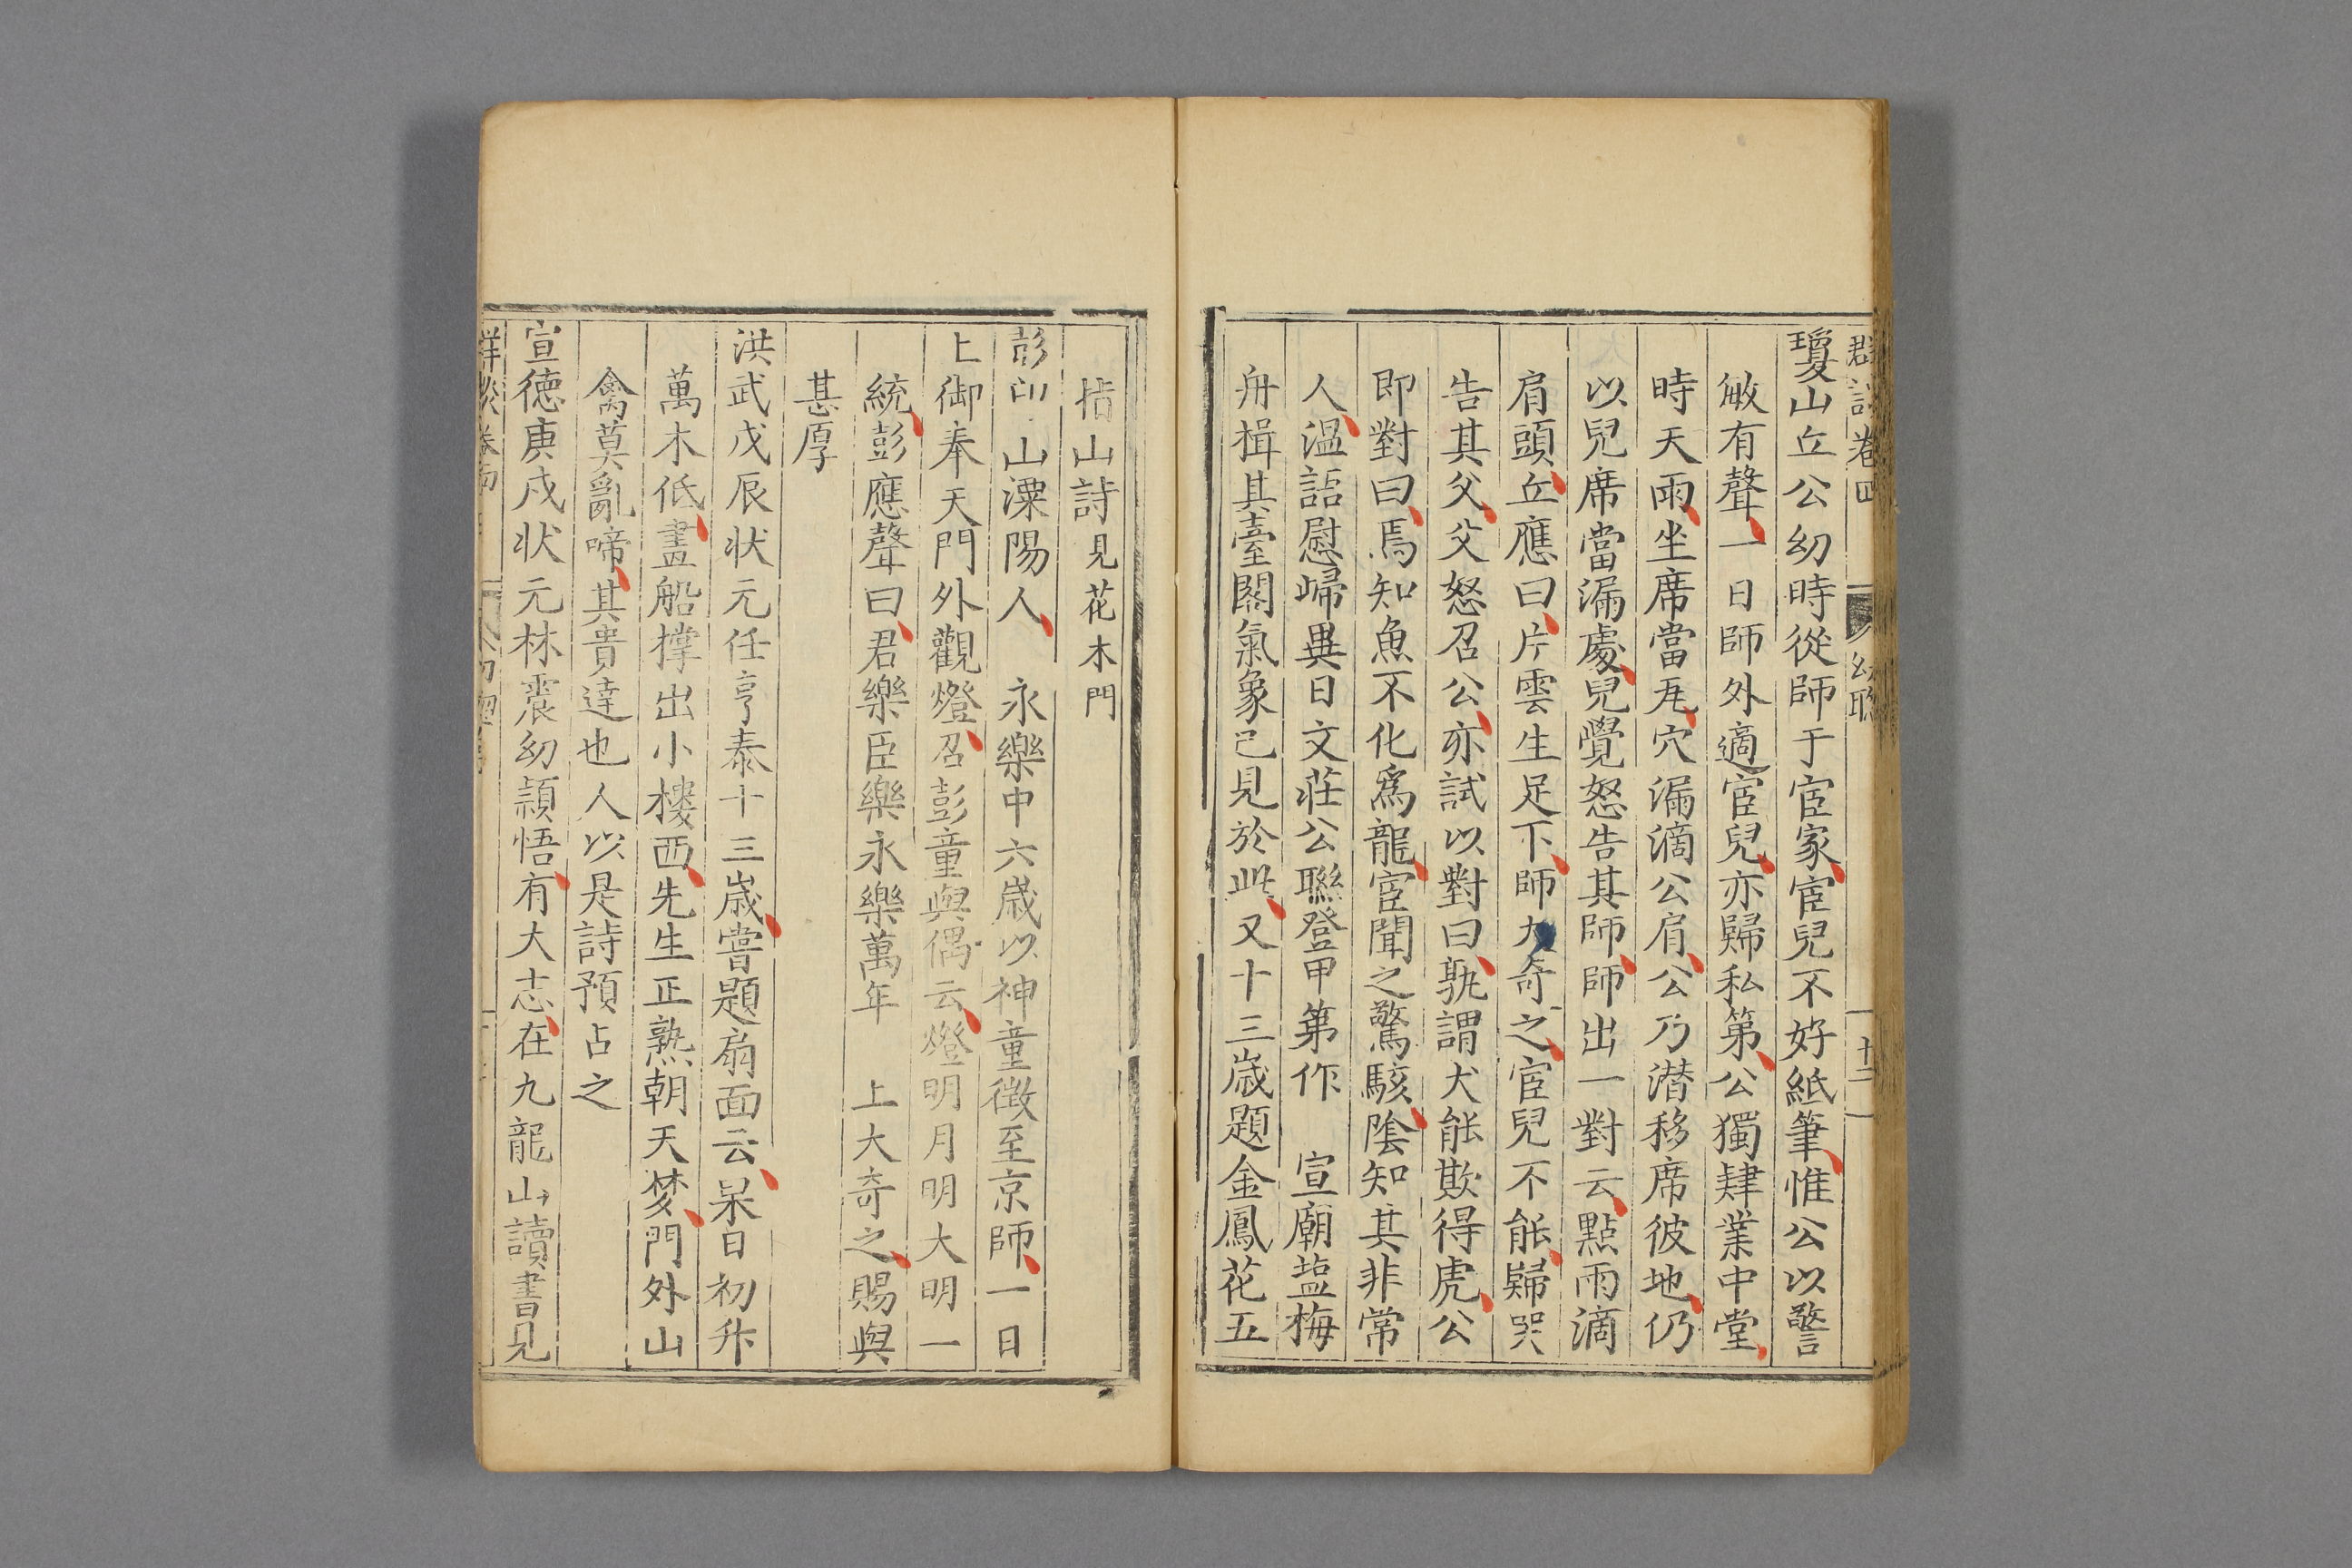 羣談卷四 幼聰 十二
瓊山丘公幼時從師于宦家宦兒不好紙筆惟公以警
敏有聲一日師外適宦兒亦歸私第公獨肄業中堂
時天雨坐席當瓦穴漏滴公肩公乃潛移席彼地仍
以兒席當漏處兒覺怒告其師師出一對云點雨滴
肩頭丘應曰片雲生足下師大奇之宦兒不能歸哭
告其父父怒召公亦試以對曰孰謂犬能欺得虎公
即對曰焉知魚不化爲龍宦聞之驚駭陰知其非常
人溫詰慰歸異日文莊公聯登甲第作 宣廟塩梅
舟楫其臺閣氣象已見於此又十三歲題金鳳花五
指山詩見花木門
彭 山溧陽人 永樂中六歲以神童徵至京師一日
上御奉天門外觀燈召彭童與偶云燈明月明大明一
統彭應聲曰君樂臣樂永樂萬年 上大奇之賜與
甚厚
洪武戊辰狀元任亨泰十三歲嘗題扇面云杲日初升
萬木低畫船撑出小樓西先生正熟朝天梦門外山
禽莫亂啼其貴達也人以是詩預占之
宣德庚戌狀元林震幼頴悟有大志在九龍山讀書見
羣談卷四